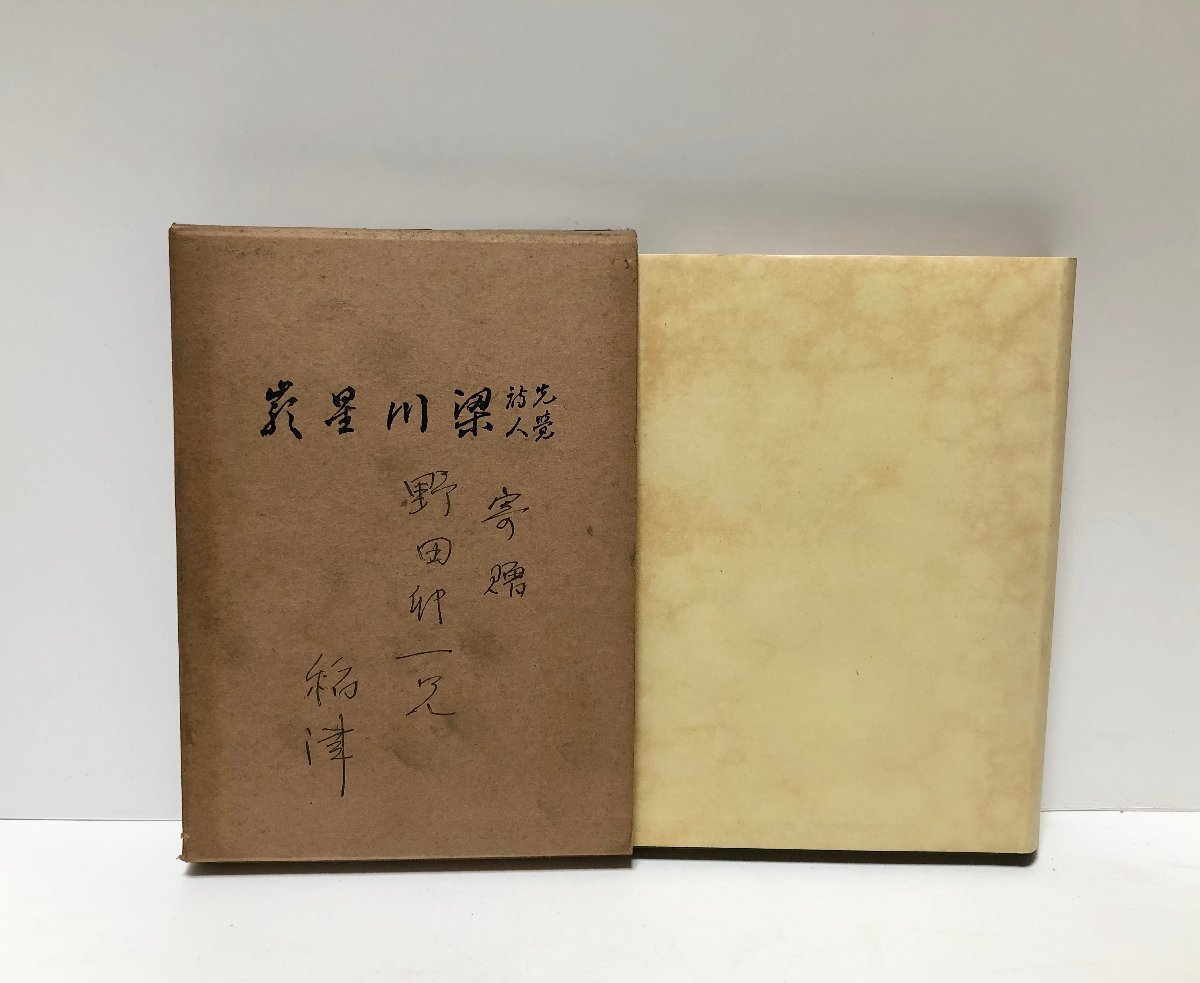 先覺詩人 梁川星巖
寄贈
野田卯一兄
稲津